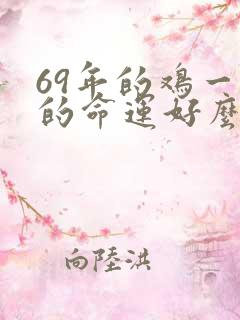 69年的鸡一
的命运好麼
向陸洪